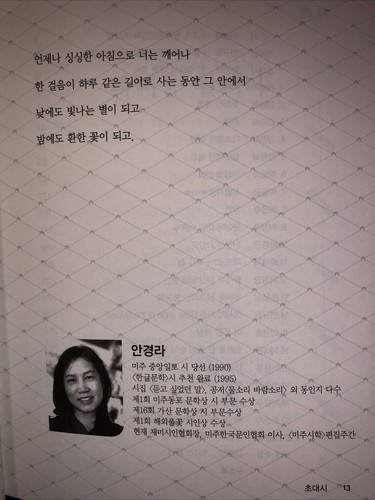 언제나 싱싱한 아침으로 너는 깨어나
한 걸음이 하루 같은 길이로 사는 동안 그 안에서
낮에도 빛나는 별이 되고
밤에도 환한 꽃이 되고.
안경라
미주 중앙일보 시 당선 (1990)
〈한글문학〉시 추천 완료 (1995)
시집 〈듣고 싶었던 말〉, 공저〈물소리 바람소리〉 외 동인지 다수
제1회 미주동포 문학상 시 부문 수상
제16회 가산 문학상 시 부문수상
제1회 해외풀꽃 시인상 수상
현재 재미시인협회장, 미주한국문인협회 이사, 〈미주시학〉편집주간
초대시 13